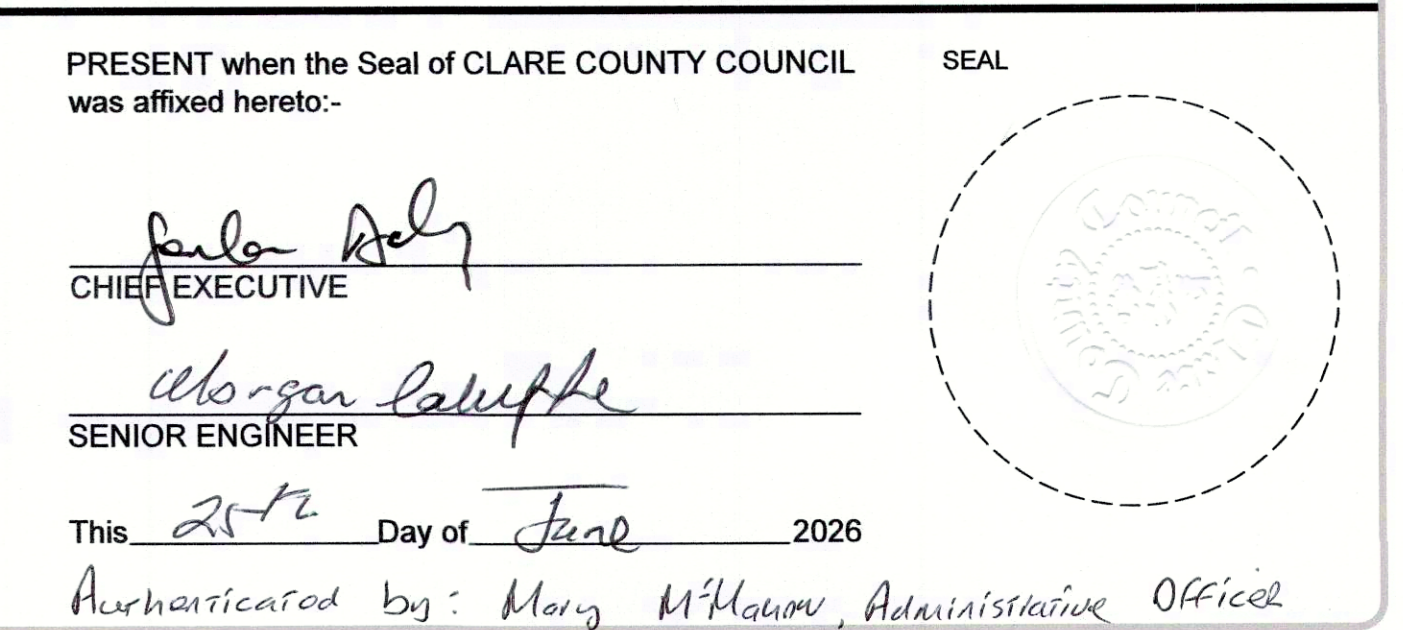 PRESENT when the Seal of CLARE COUNTY COUNCIL
was affixed hereto:-
SEAL
CHIEF EXECUTIVE
Morgan
SENIOR ENGINEER
This 25th Day of June 2026
Authenticated by: Mary McMahon, Administrative Officer
Clare County Council